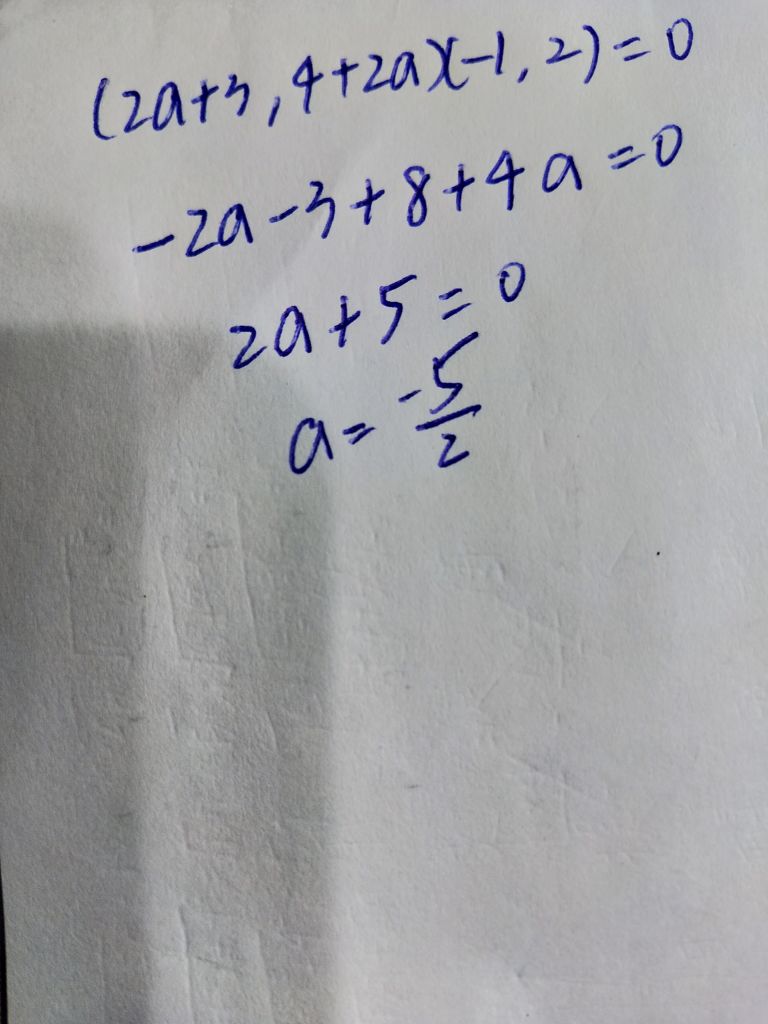 (2a+3,4+2a)(-1,2)=0
-2a-3+8+4a=0
2a+5=0
a=-5/2